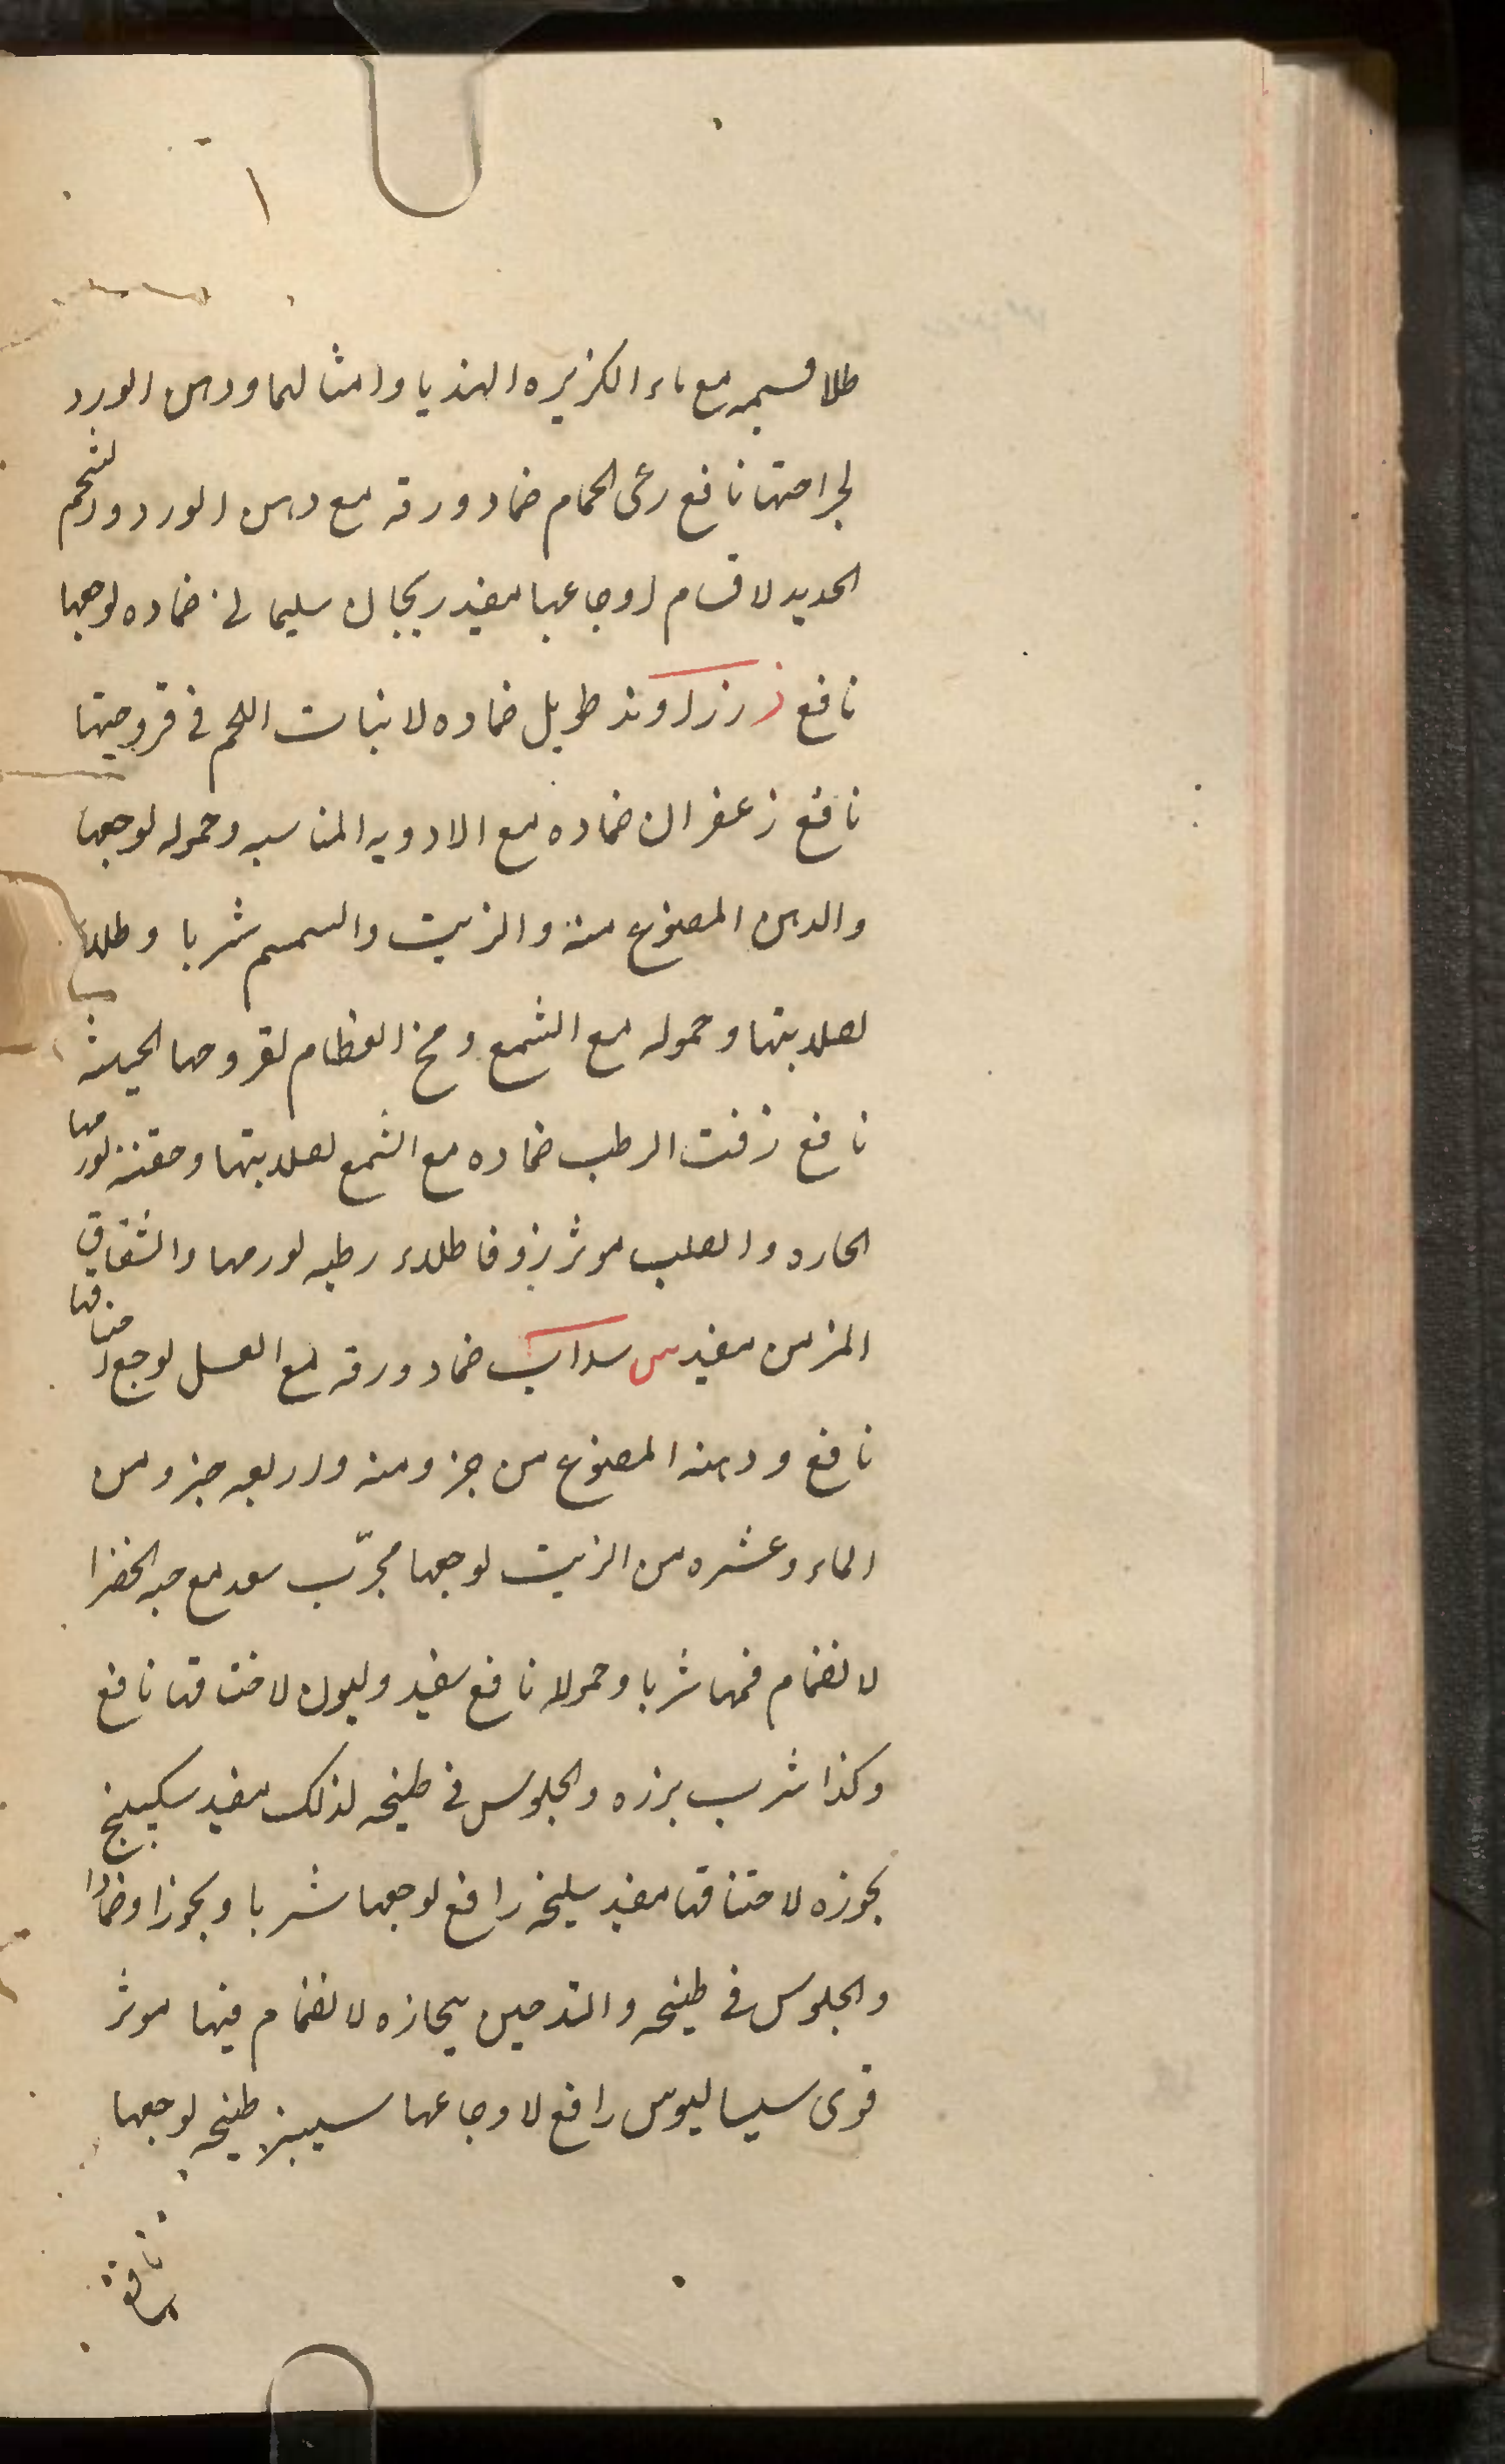 طلا قسميه مع ماء الكزبره الهنديا وامثالهما ودهن الورد
لجراحتها نافع رعى الحمام ضماد ورقه مع دهن الورد والشحم
الحديد لاقسام اوجاعها مفيد ريحان سليمانى ضماده لوجعها
نافع ز زراوند طويل ضماده لانبات اللحم فى قروحيتها
نافع زعفران ضماده مع الادويه المناسبه وحموله لوجعها
والدهن المصنوع منه والزيت والسمسم شربا وطلاء
لصلابتها وحموله مع الشمع ومخ العظام لقروحها الخبيثه
نافع زفت الرطب ضماده مع الشمع لصلابتها وحقنته لورمها
الحاره والصلب موثر زوفا طلاء رطبه لورمها والشقاق
المزمن مفيد س سداب ضماد ورقه مع العسل لوجع اختناقها
نافع ودهنه المصنوع من جزو منه واربعه جزو من
الماء وعشره من الزيت لوجعها مجرّب سعد مع حبه الخضرا
لانضمام فمها شربا وحمولا نافع سفيدوليون لاختناقها نافع
وكذا شرب بزره والجلوس فى طبيخه لذلك مفيد سكبينج
بخوره لاختناقها مفيد سليخه رافع لوجعها شربا وبخورا وضمادا
والجلوس فى طبيخه والتدخين ببخاره لانضمام فيها موثر
قوى سيساليوس رافع لاوجاعها سيسنبر طبيخه لوجعها
نافع